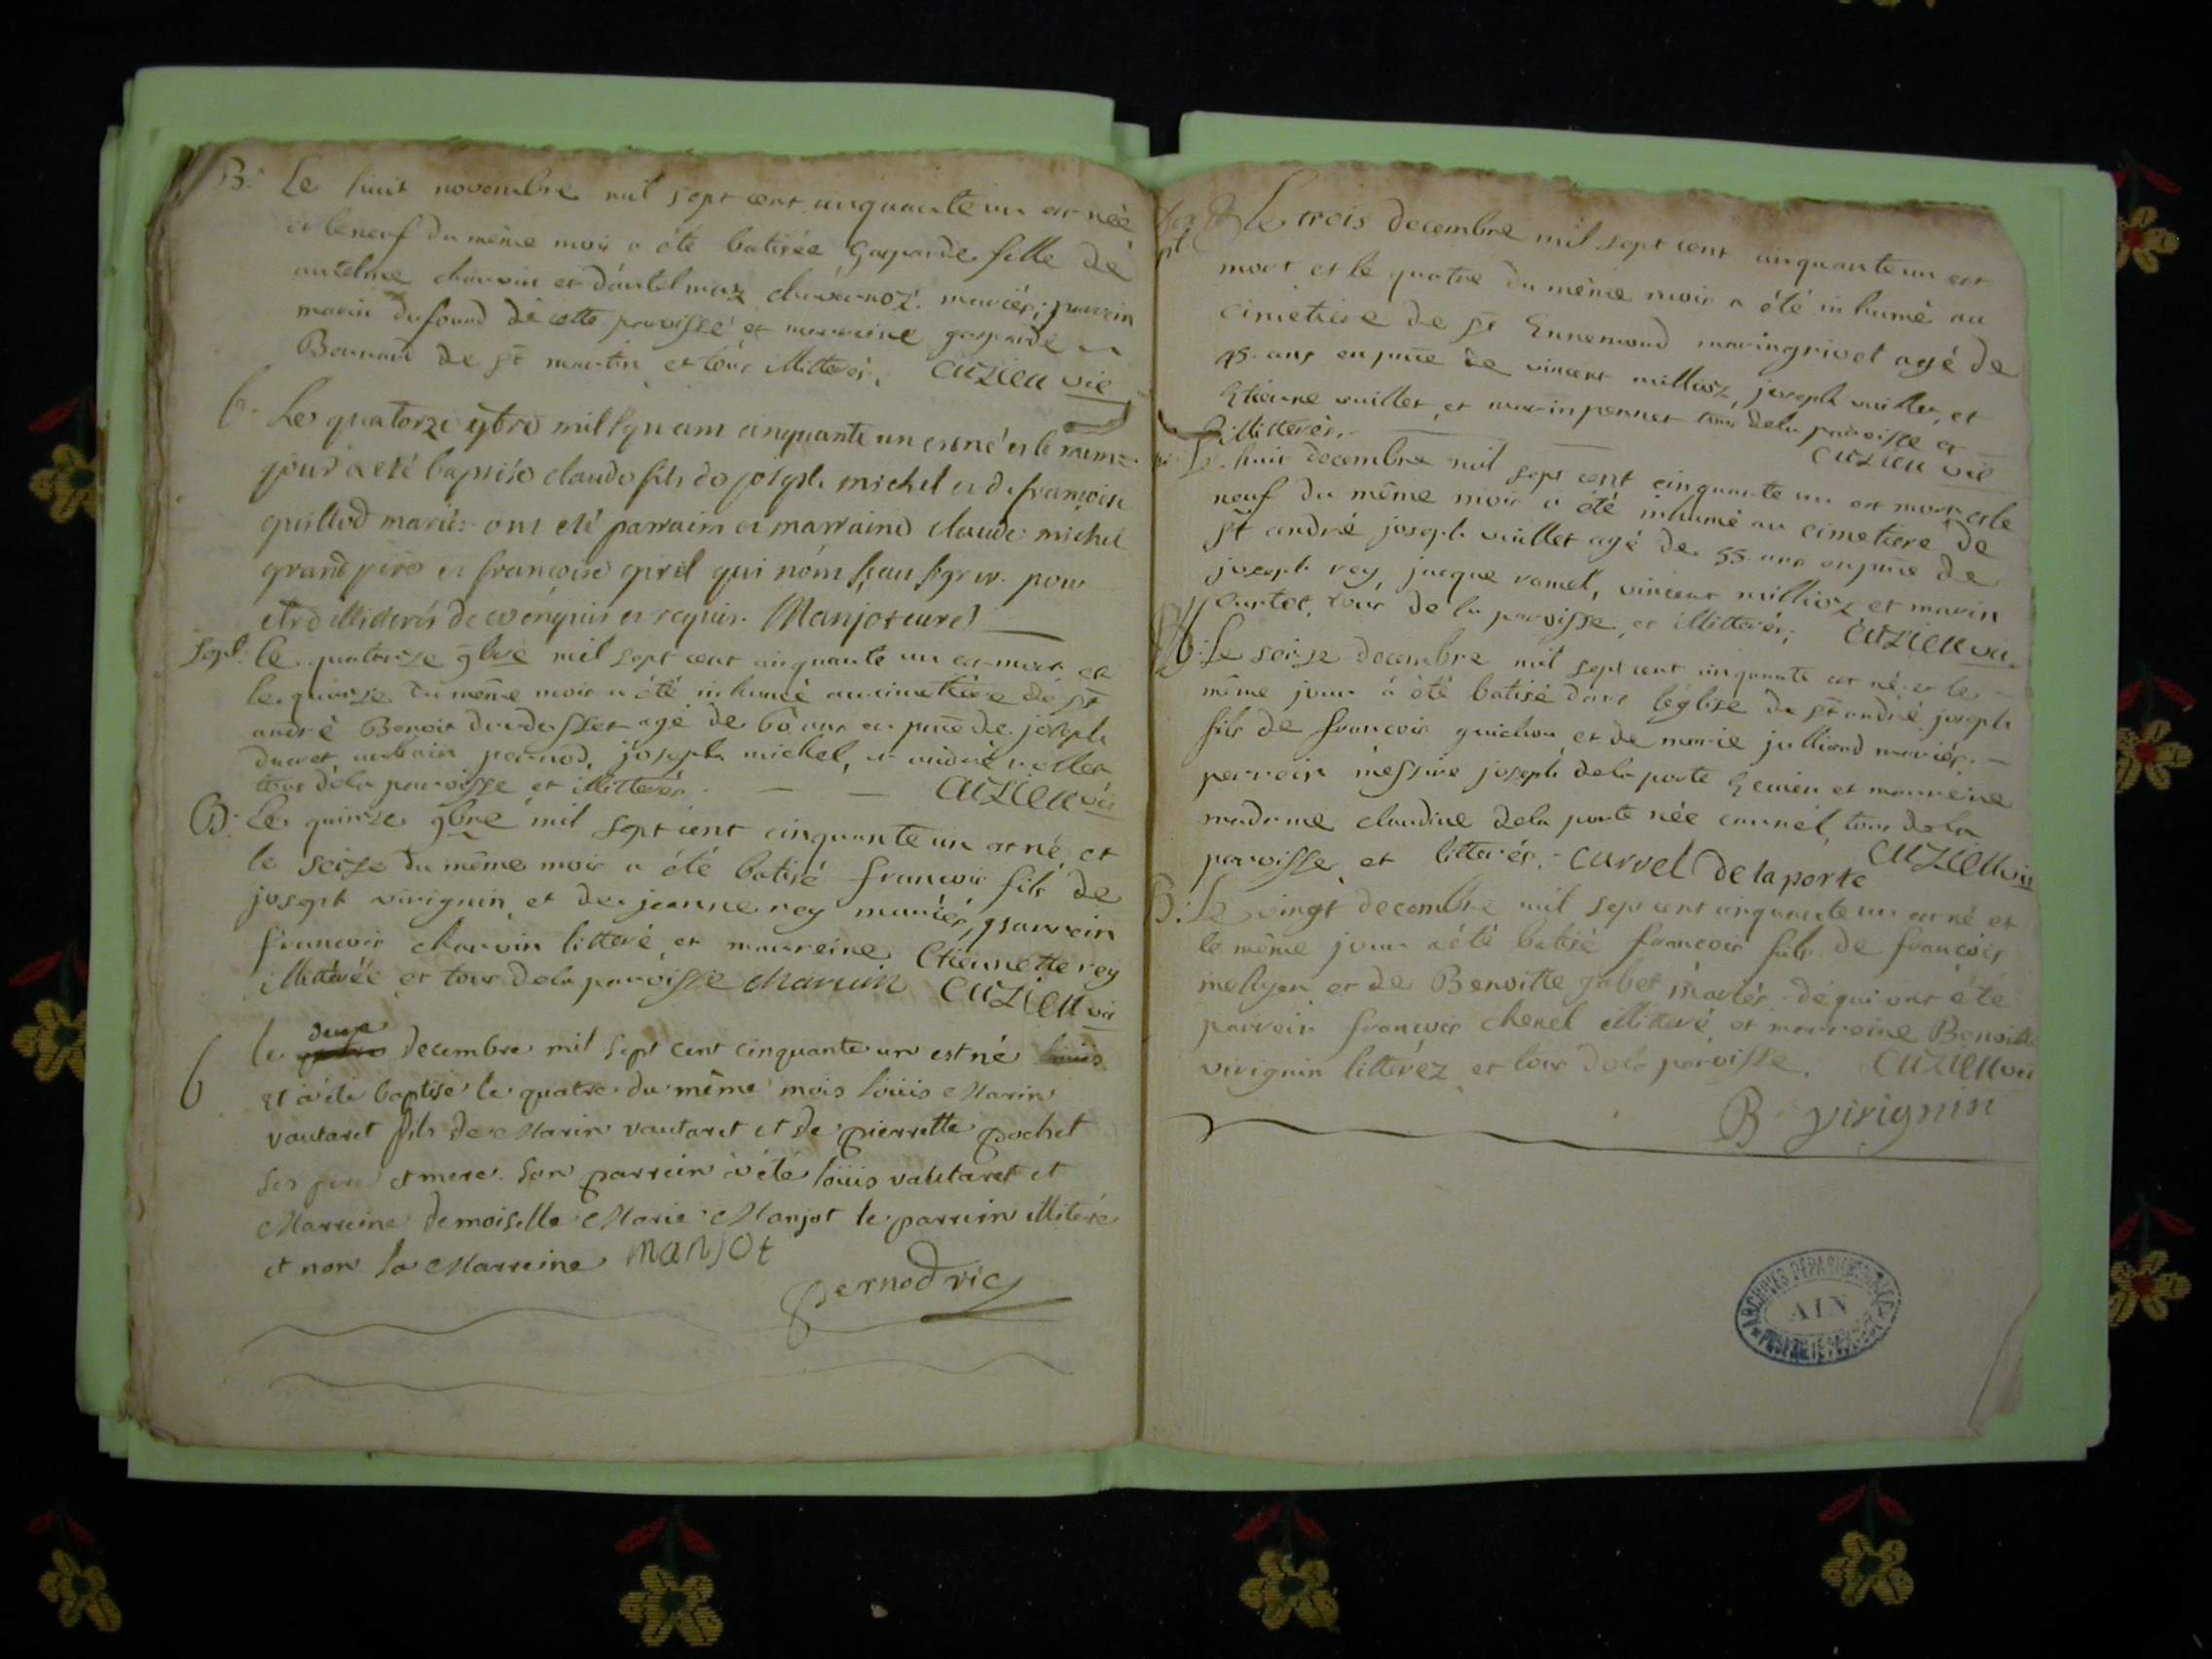 B. Le huit novembre mil sept cent cinquante un est née
et le neuf du même mois a été batisée Gasparde fille de
antelme charvin et d'antelmaz chavannoz mariés; parrein
marin dufourd de cette paroisse et marreine gasparde
Bernard de st martin et tous illitterés. CUZIEU vic
b. Le quatorze 9bre mil sept cent cinquante un est né et le meme
jour a eté baptisé claude fils de joseph michel et de francoise
guillod mariés ont eté parrain et marraine claude michel
grand pere et francoise girel qui n'ont sceu signer pour
etre illiterés de ce enquis et requis. Manjot curé
Sepl. le quatorze 9bre mil sept cent cinquante un est mort et
le quinze du même mois a été inhumé au cimetière de st
andré Benoit agé de 60 ans en pnce de joseph
ducret, urbain pernod, joseph michel, et andré
tous de la paroisse et illitterés. CUZIEU vic
B. Le quinze 9bre mil sept cent cinquante un est né et
le seize du même mois a été batisé francois fils de
joseph virignin et de jeanne rey mariés, parrein
francois charvin litteré et marreine Etiennette rey
illitterée et tous de la paroisse charvin CUZIEU vic
deuxe
b le quatre decembre mil sept cent cinquante un est né louis
et a été baptisé le quatre du même mois louis Marin
vautaret fils de Marin vautaret et de pierrette pochet
ses pere et mere. son parrein a été louis vautaret et
Marreine demoiselle Marie Manjot le parrein illiteré
et non la Marreine manjot
pernod vic
Le trois decembre mil sept cent cinquante un est
mort et le quatre du même mois a été inhumé au
cimetiere de st Ennemond marin grivel agé de
45 ans en pnce de vincent millioz, joseph vuillet, et
Etienne vuillet, et marin pernet tous de la paroisse et
illitterés. CUZIEU vic
Le huit decembre mil sept cent cinquante un est mort et le
neuf du même mois a été inhumé au cimetiere de
st andré joseph vuillet agé de 55 ans en pnce de
joseph rey, jacque ramel, vincent millioz et marin
curtet, tous de la paroisse et illitterés; CUZIEU vic
B. Le seize decembre mil sept cent cinquante est né et le
même jour a été batisé dans l'église de st andré joseph
fils de francois guichon et de marie julliard mariés.
parrein messire joseph de la porte Ecuier et marreine
madame claudine de la porte née curnel, tous de la
paroisse et litterés. curvel De la porte CUZIEU vic
B. Le vingt decembre mil sept cent cinquante un est né et
le même jour a été batisé francois fils de francois
mellyer et de Benoitte gobet mariés. de qui ont été
parrein francois chenel illitteré et marreine Benoitte
virignin litterez et tous de la paroisse. CUZIEU vic
B. virignin
ARCHIVES DEPARTEMENTALES
AIN